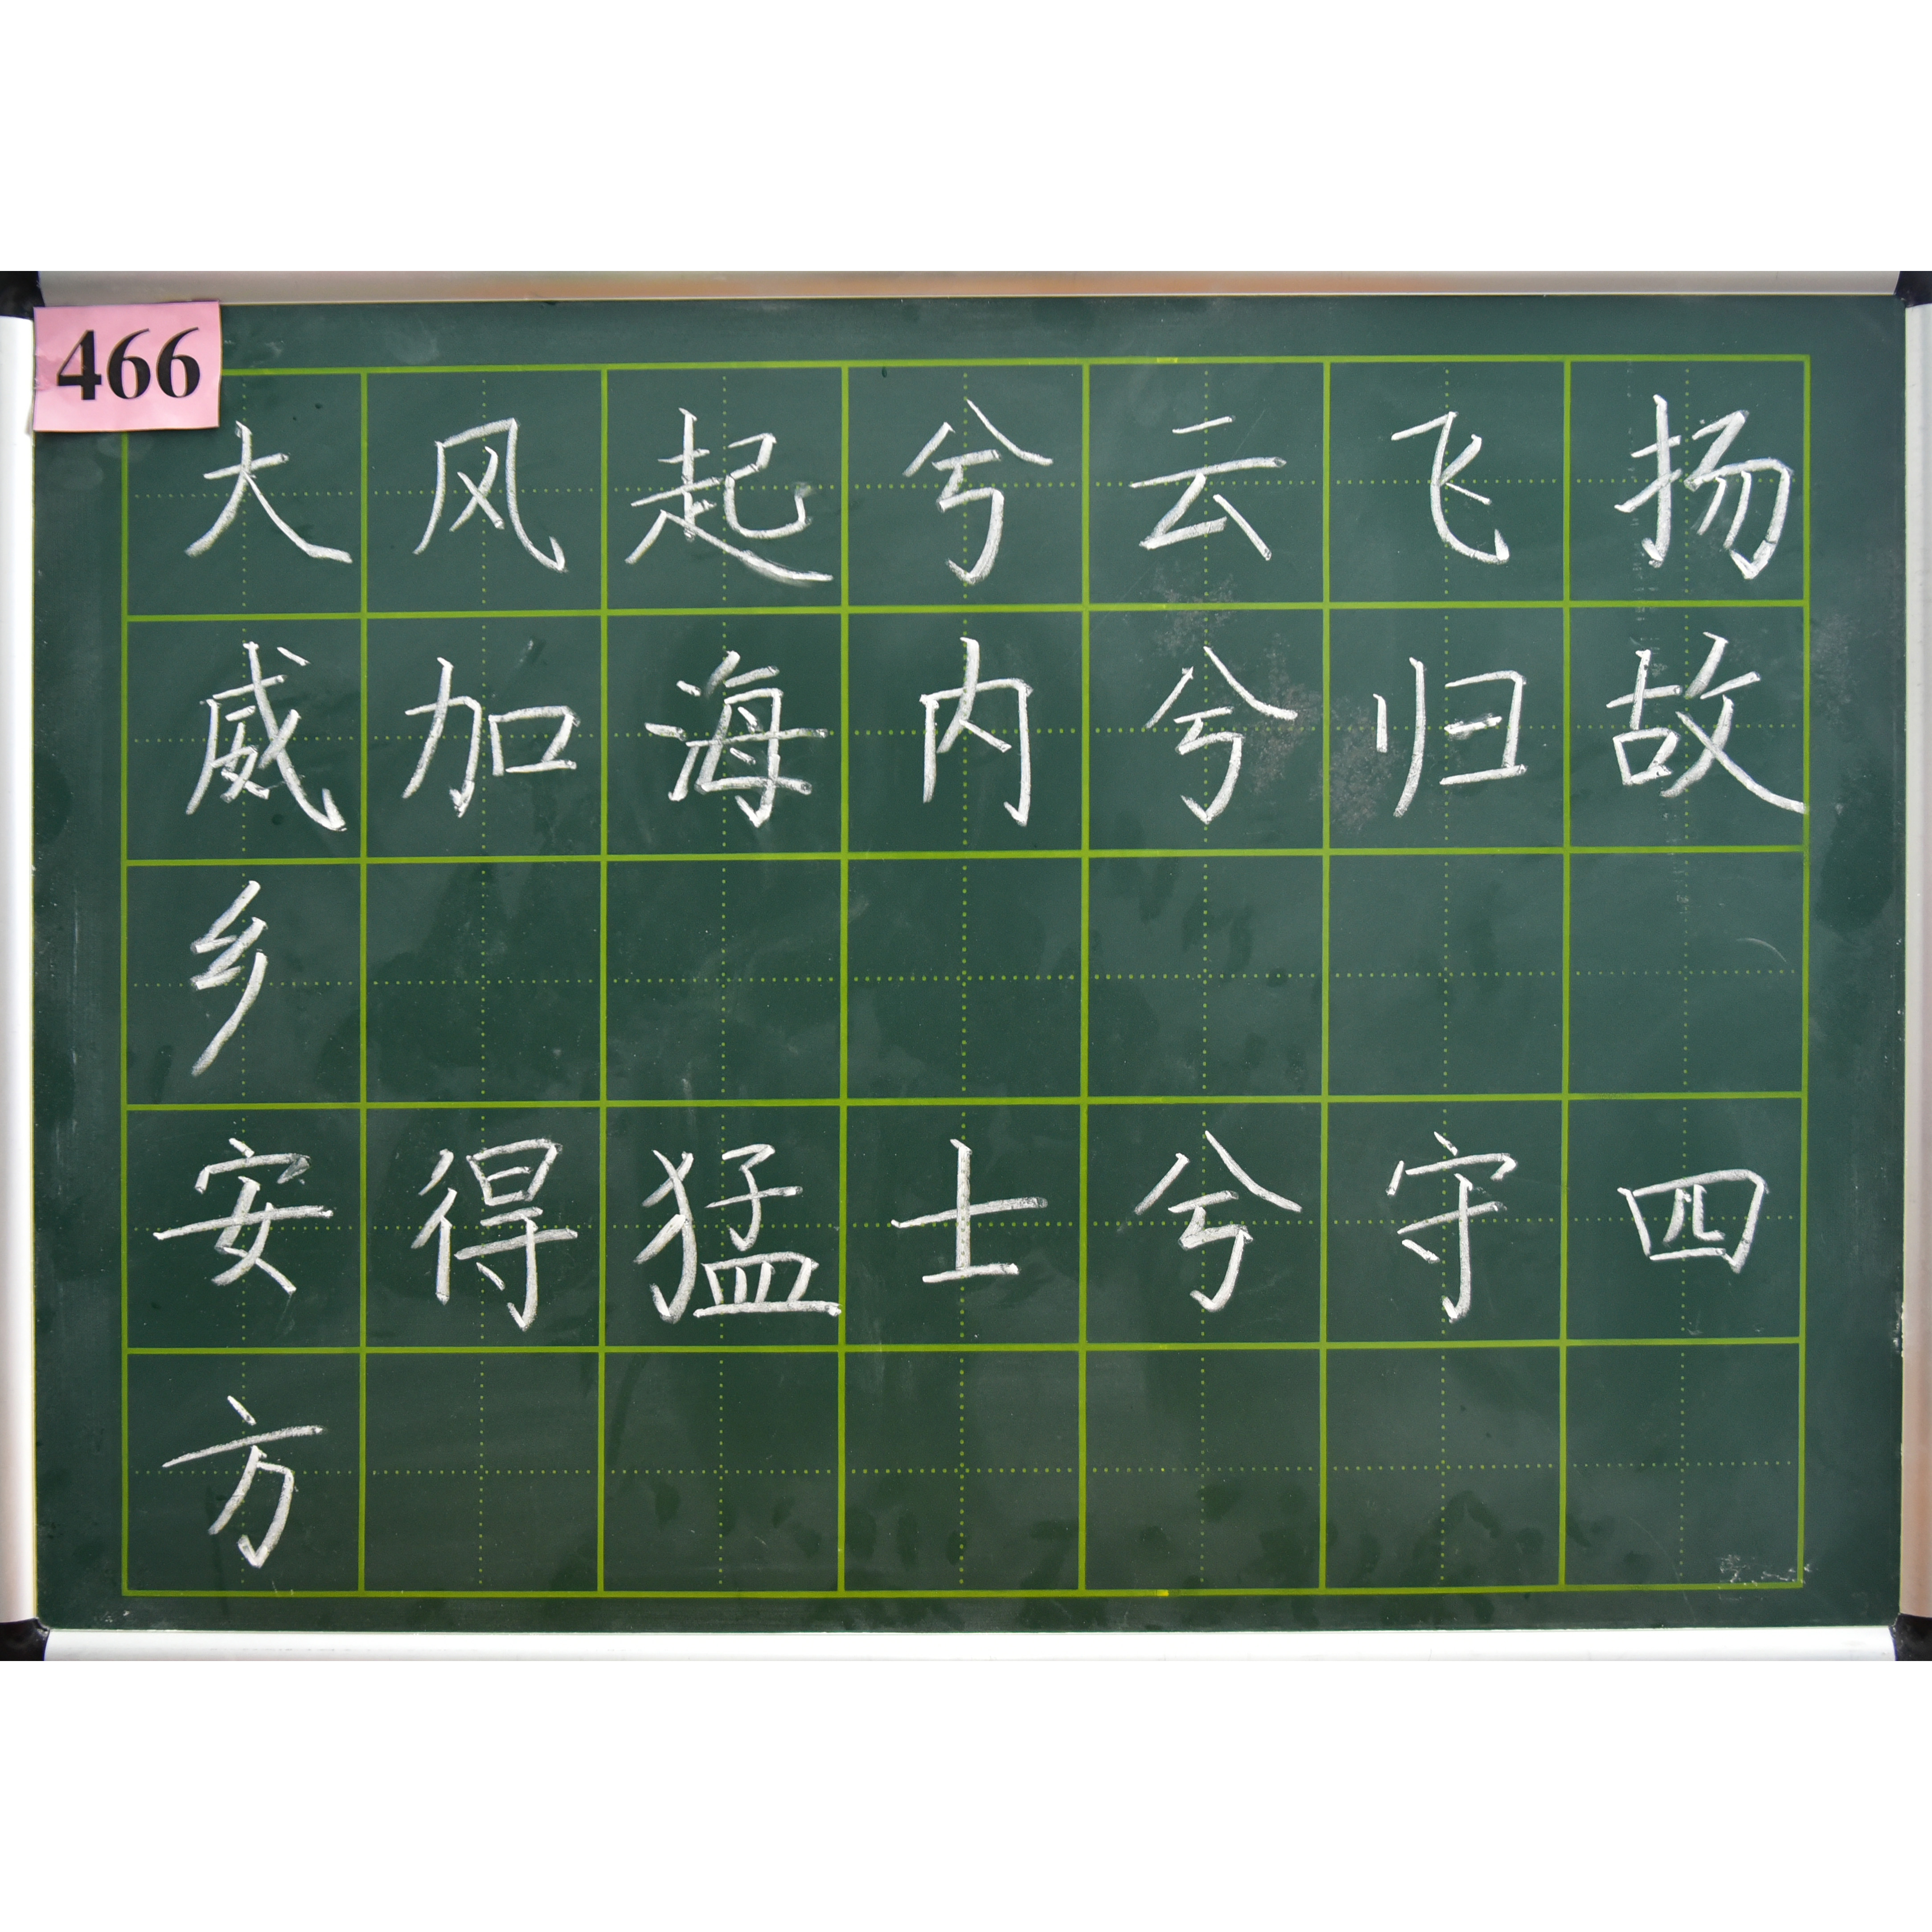 466
大风起兮云飞扬
威加海内兮归故
乡
安得猛士兮守四
方